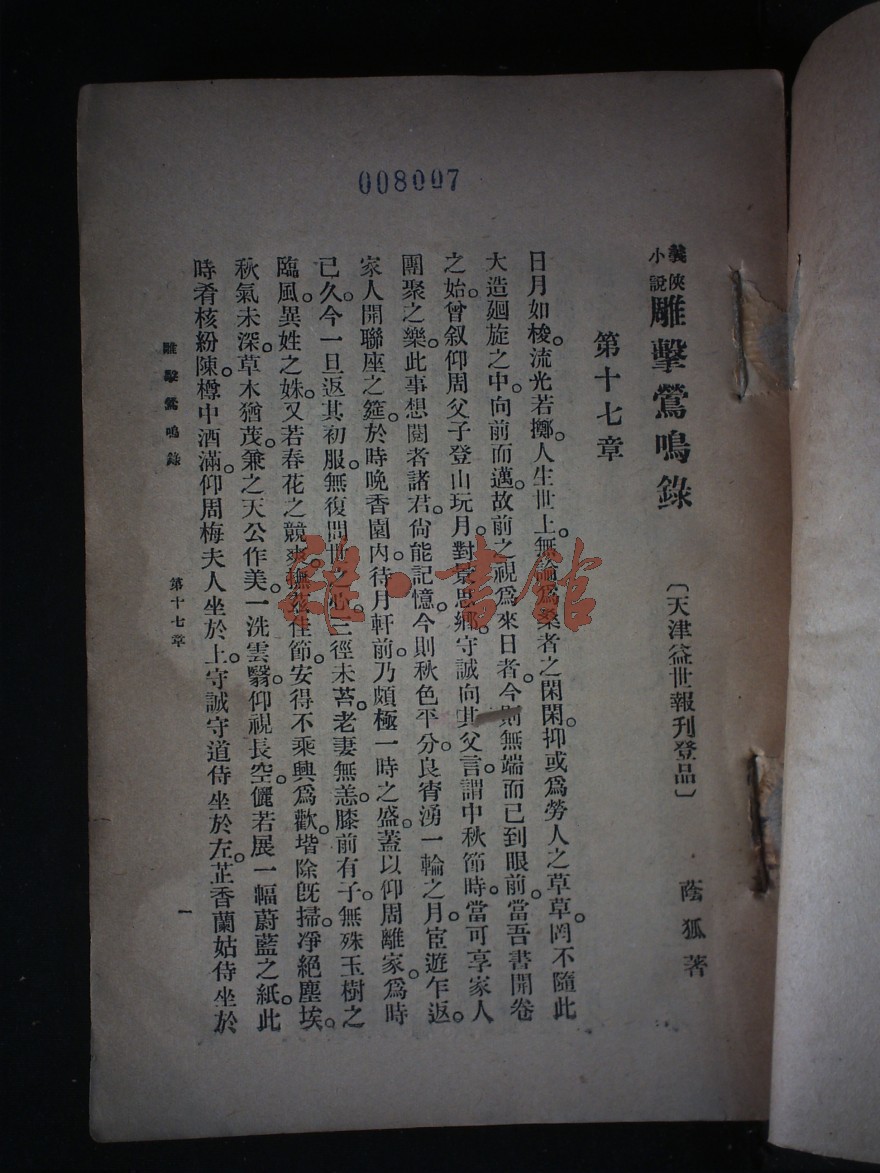 008007
義俠小說 雕擊鶯鳴錄 〔天津益世報刊登品〕 蔭狐著
第十七章
日月如梭。流光若擲。人生世上。無論爲桑者之閑閑。抑或爲勞人之草草。罔不隨此
大造廻旋之中。向前而邁。故前之視爲來日者。今則無端而已到眼前。當吾書開卷
之始。曾叙仰周父子登山玩月。對景思鄉。守誠向其父言。謂中秋節時。當可享家人
團聚之樂。此事想閱者諸君。尙能記憶。今則秋色平分。良宵湧一輪之月。宦遊乍返。
家人開聯座之筵。於時晚香園內。待月軒前。乃頗極一時之盛。蓋以仰周離家。爲時
已久。今一旦返其初服。無復問世之心。三徑未苔。老妻無恙。膝前有子。無殊玉樹之
臨風。異姓之姝。又若春花之競爽。撫茲佳節。安得不乘興爲歡。堦除旣掃。凈絕塵埃。
秋氣未深。草木猶茂。兼之天公作美。一洗雲翳。仰視長空。儼若展一幅蔚藍之紙。此
時肴核紛陳。樽中酒滿。仰周梅夫人坐於上。守誠守道侍坐於左。芷香蘭姑侍坐於
雕擊鶯鳴錄 第十七章 一
雜·書館